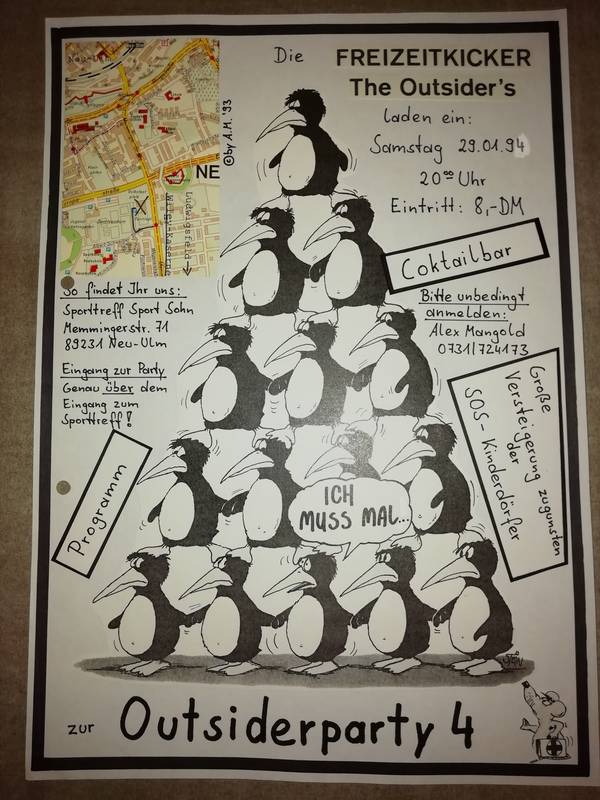 Die FREIZEITKICKER
The Outsider's
laden ein:
Samstag 29.01.94
20⁰⁰ Uhr
Eintritt: 8,-DM
©by A.M. '93
NE
Ludwigsfeld
Wiley-Kaserne
Coktailbar
So findet Ihr uns:
Sporttreff Sport Sohn
Memmingerstr. 71
89231 Neu-Ulm
Eingang zur Party
Genau über dem
Eingang zum
Sporttreff!
Bitte unbedingt
anmelden:
Alex Mangold
0731/724173
Große
Versteigerung zugunsten
der
SOS-Kinderdörfer
Programm
ICH
MUSS MAL...
zur Outsiderparty 4